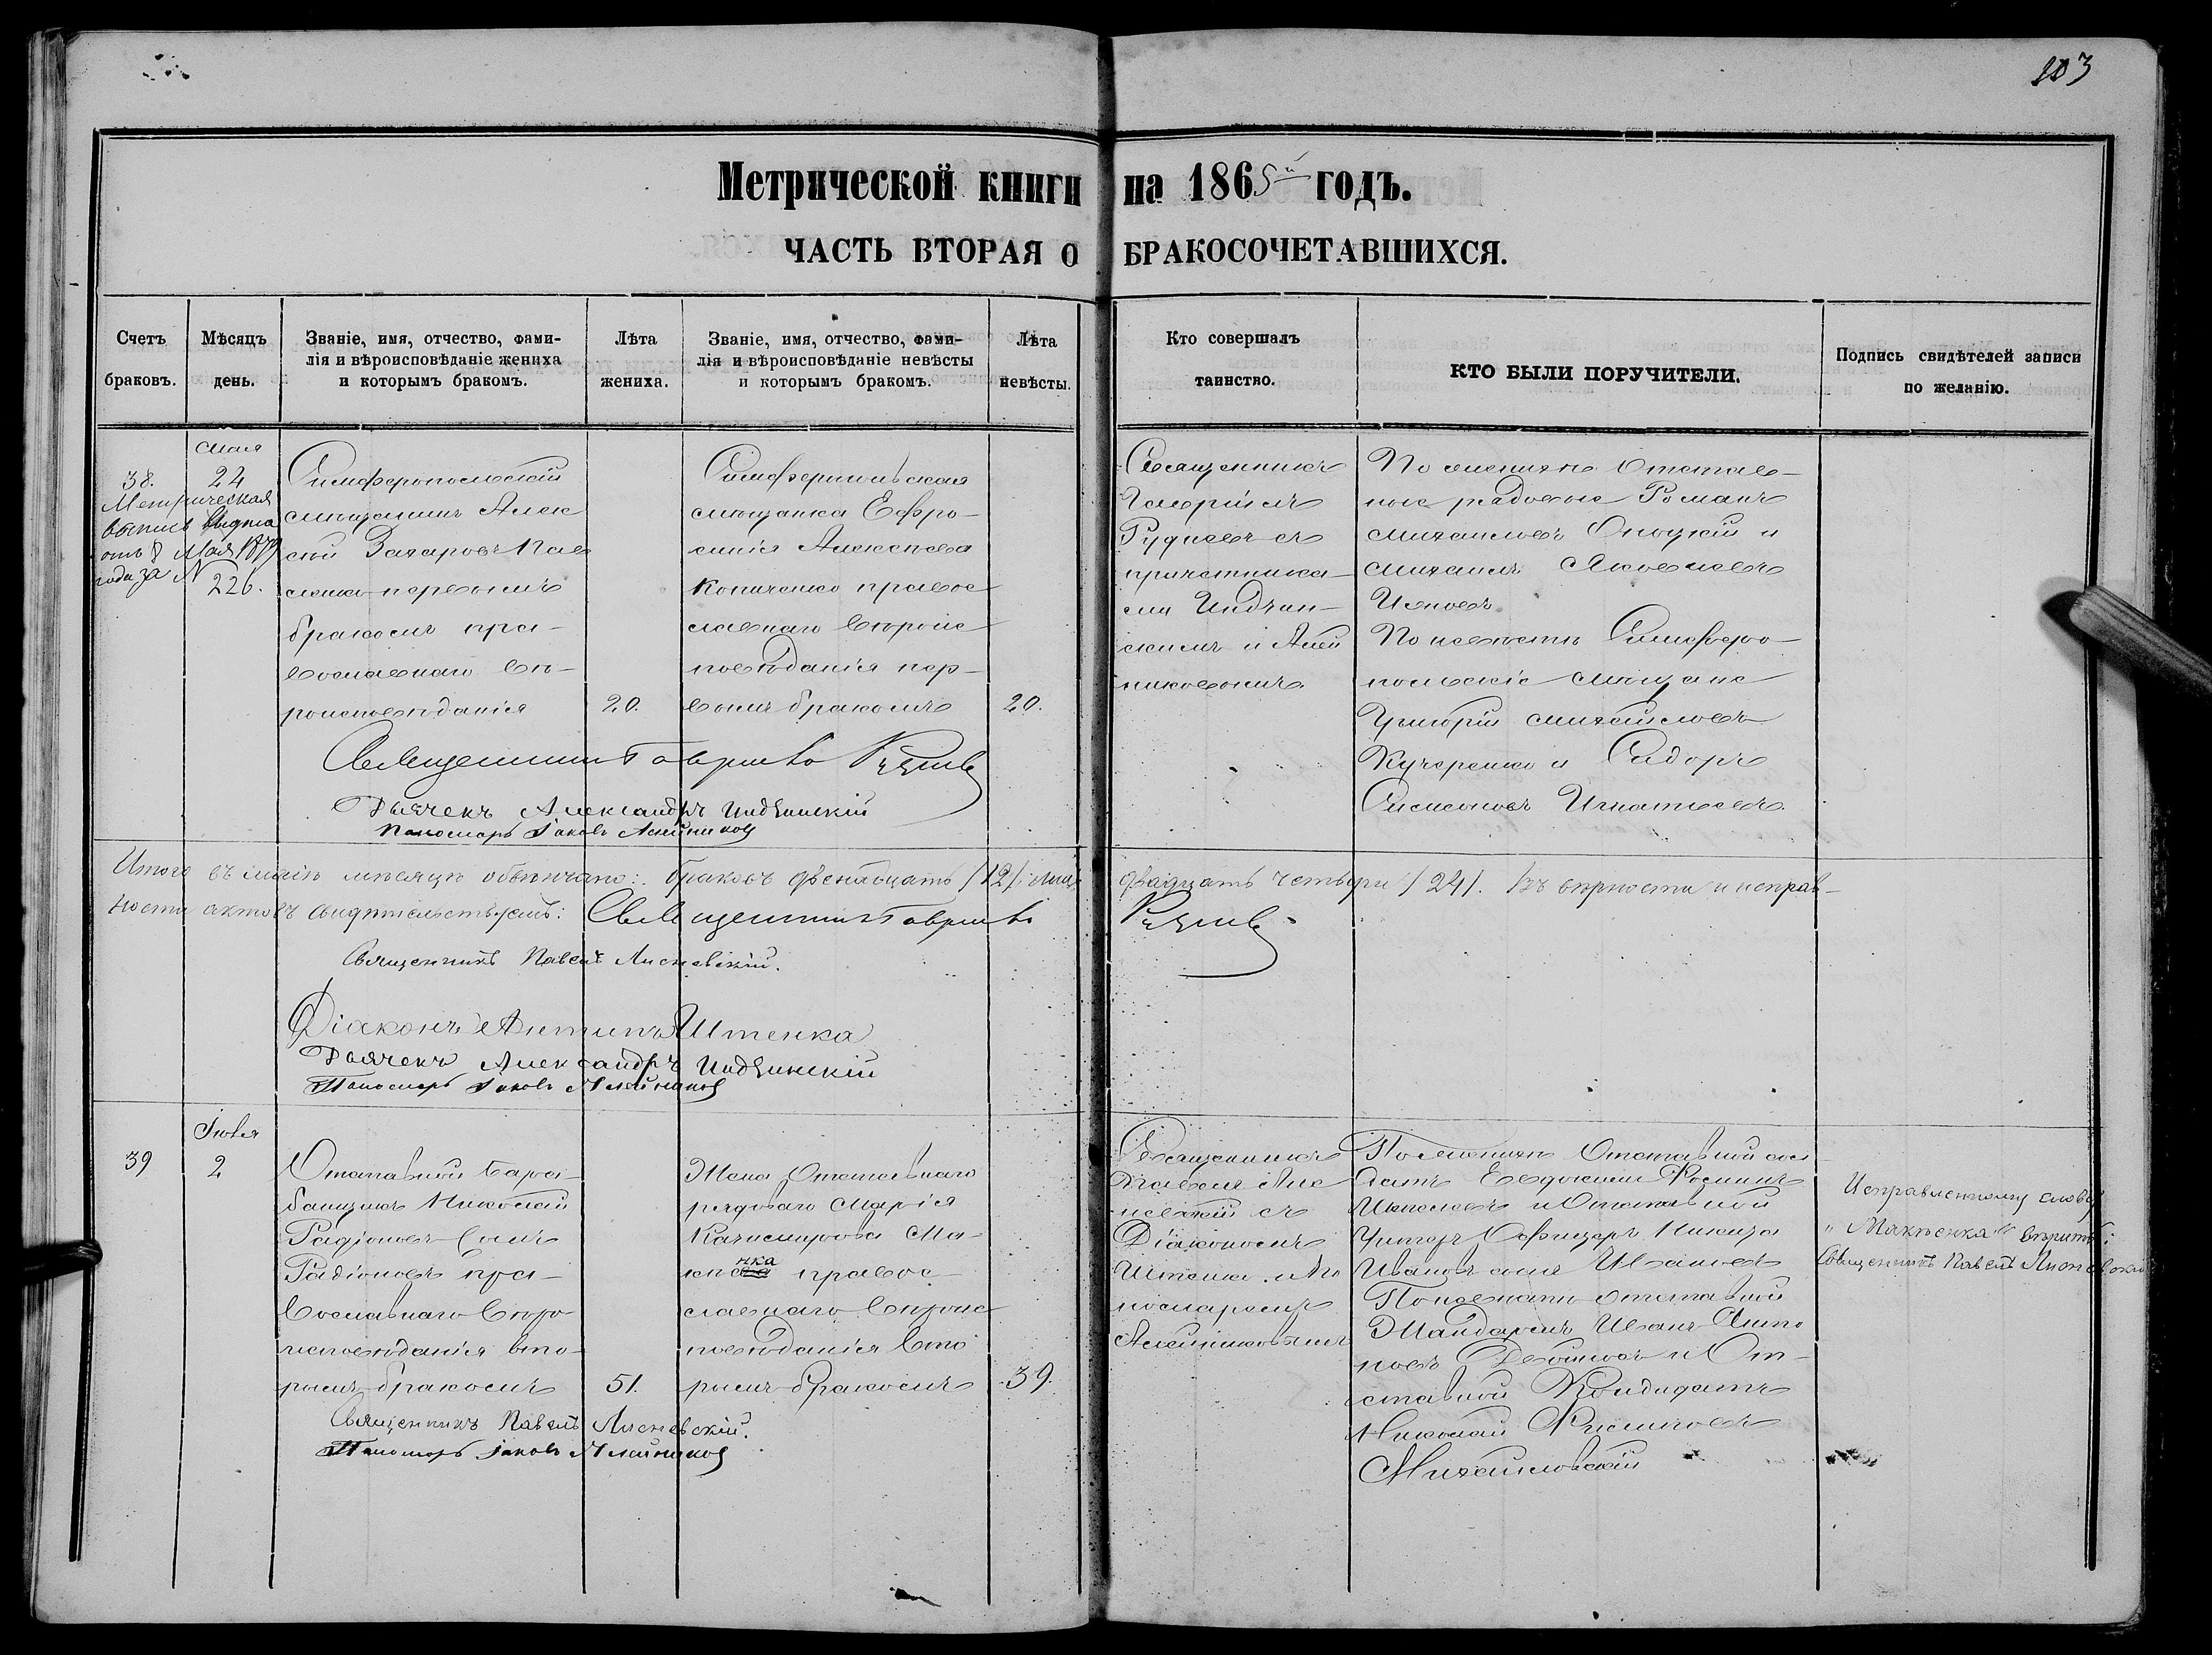 103
Метрической книги на 1865й годъ.
ЧАСТЬ ВТОРАЯ О БРАКОСОЧЕТАВШИХСЯ.
Счетъ
браковъ.
Мѣсяцъ
день.
Званіе, имя, отчество, фами-
лія и вѣроисповѣданіе жениха
и которымъ бракомъ.
Лѣта
жениха.
Званіе, имя, отчество, фами-
лія и вѣроисповѣданіе невѣсты
и которымъ бракомъ.
Лѣта
невѣсты.
Кто совершалъ
таинство.
КТО БЫЛИ ПОРУЧИТЕЛИ.
Подпись свидѣтелей записи
по желанію.
38.
Метрическая
выпись выдана
отъ 8 Мая 1879
года за №
226.
Мая
24
Симферопольскій
мѣщанинъ Алек
сѣй Захаровъ Пав
ленко первымъ
бракомъ пра-
вославнаго вѣ-
роисповѣданія
20.
Симферопольская
мѣщанка Ефро-
синія Алексѣева
православ
славнаго вѣроис
повѣданія пер-
вымъ бракомъ
20.
Священникъ
Гавріилъ
Рудневъ съ
причетника-
ми Индчин-
скимъ и Алей
никовымъ.
По женихѣ Отстав-
ные рядовые Романъ
Михайловъ и
Михаилъ Яковлевъ
По невѣстѣ Симферо-
польскіе мѣщане
Григорій Михайловъ
Кучеренко и Сидоръ
Симоновъ Игнатьевъ.
Священникъ Гавріилъ Рудневъ
Дьячекъ Александръ Индчинскій
Пономарь Іаковъ Алейниковъ
Итого въ маѣ мѣсяцѣ обвѣнчано: браковъ двенадцать /12/; лицъ двадцать четыри /24/. Въ вѣрности и исправ-
ности актовъ свидѣтельствуемъ: Священникъ Гавріилъ Рудневъ
Священникъ Павелъ Лисневскій.
Діаконъ Антипъ Штенка
Дьячекъ Александръ Индчинскій
Пономарь Іаковъ Алейниковъ
39
Іюня
2
Отставной Бара-
банщикъ Николай
Радіоновъ сынъ
Радіоновъ пра-
вославнаго вѣро
исповѣданія вто-
рымъ бракомъ
51.
Жена Отставнаго
рядоваго Марія
Казимирова Ма-
нка православ
славнаго вѣроис
повѣданія вто
рымъ бракомъ
39.
Священникъ
Павелъ Лис
невскій съ
Діакономъ
Штенка и По
номаремъ
Алейниковымъ
По женихѣ Отставной сол
датъ Евдокимъ Фоминъ
и Отставной
Унтеръ Офицеръ Никита
Ивановъ сынъ Ивановъ
По невѣстѣ отставной
Жандармъ Иванъ Анто
новъ и От-
ставной Кондидатъ
Николай
Михайловскій
Исправленному слову
„Макѣенка" вѣрить:
Священникъ Павелъ Лисневскій
Священникъ Павелъ Лисневскій.
Пономарь Іаковъ Алейниковъ